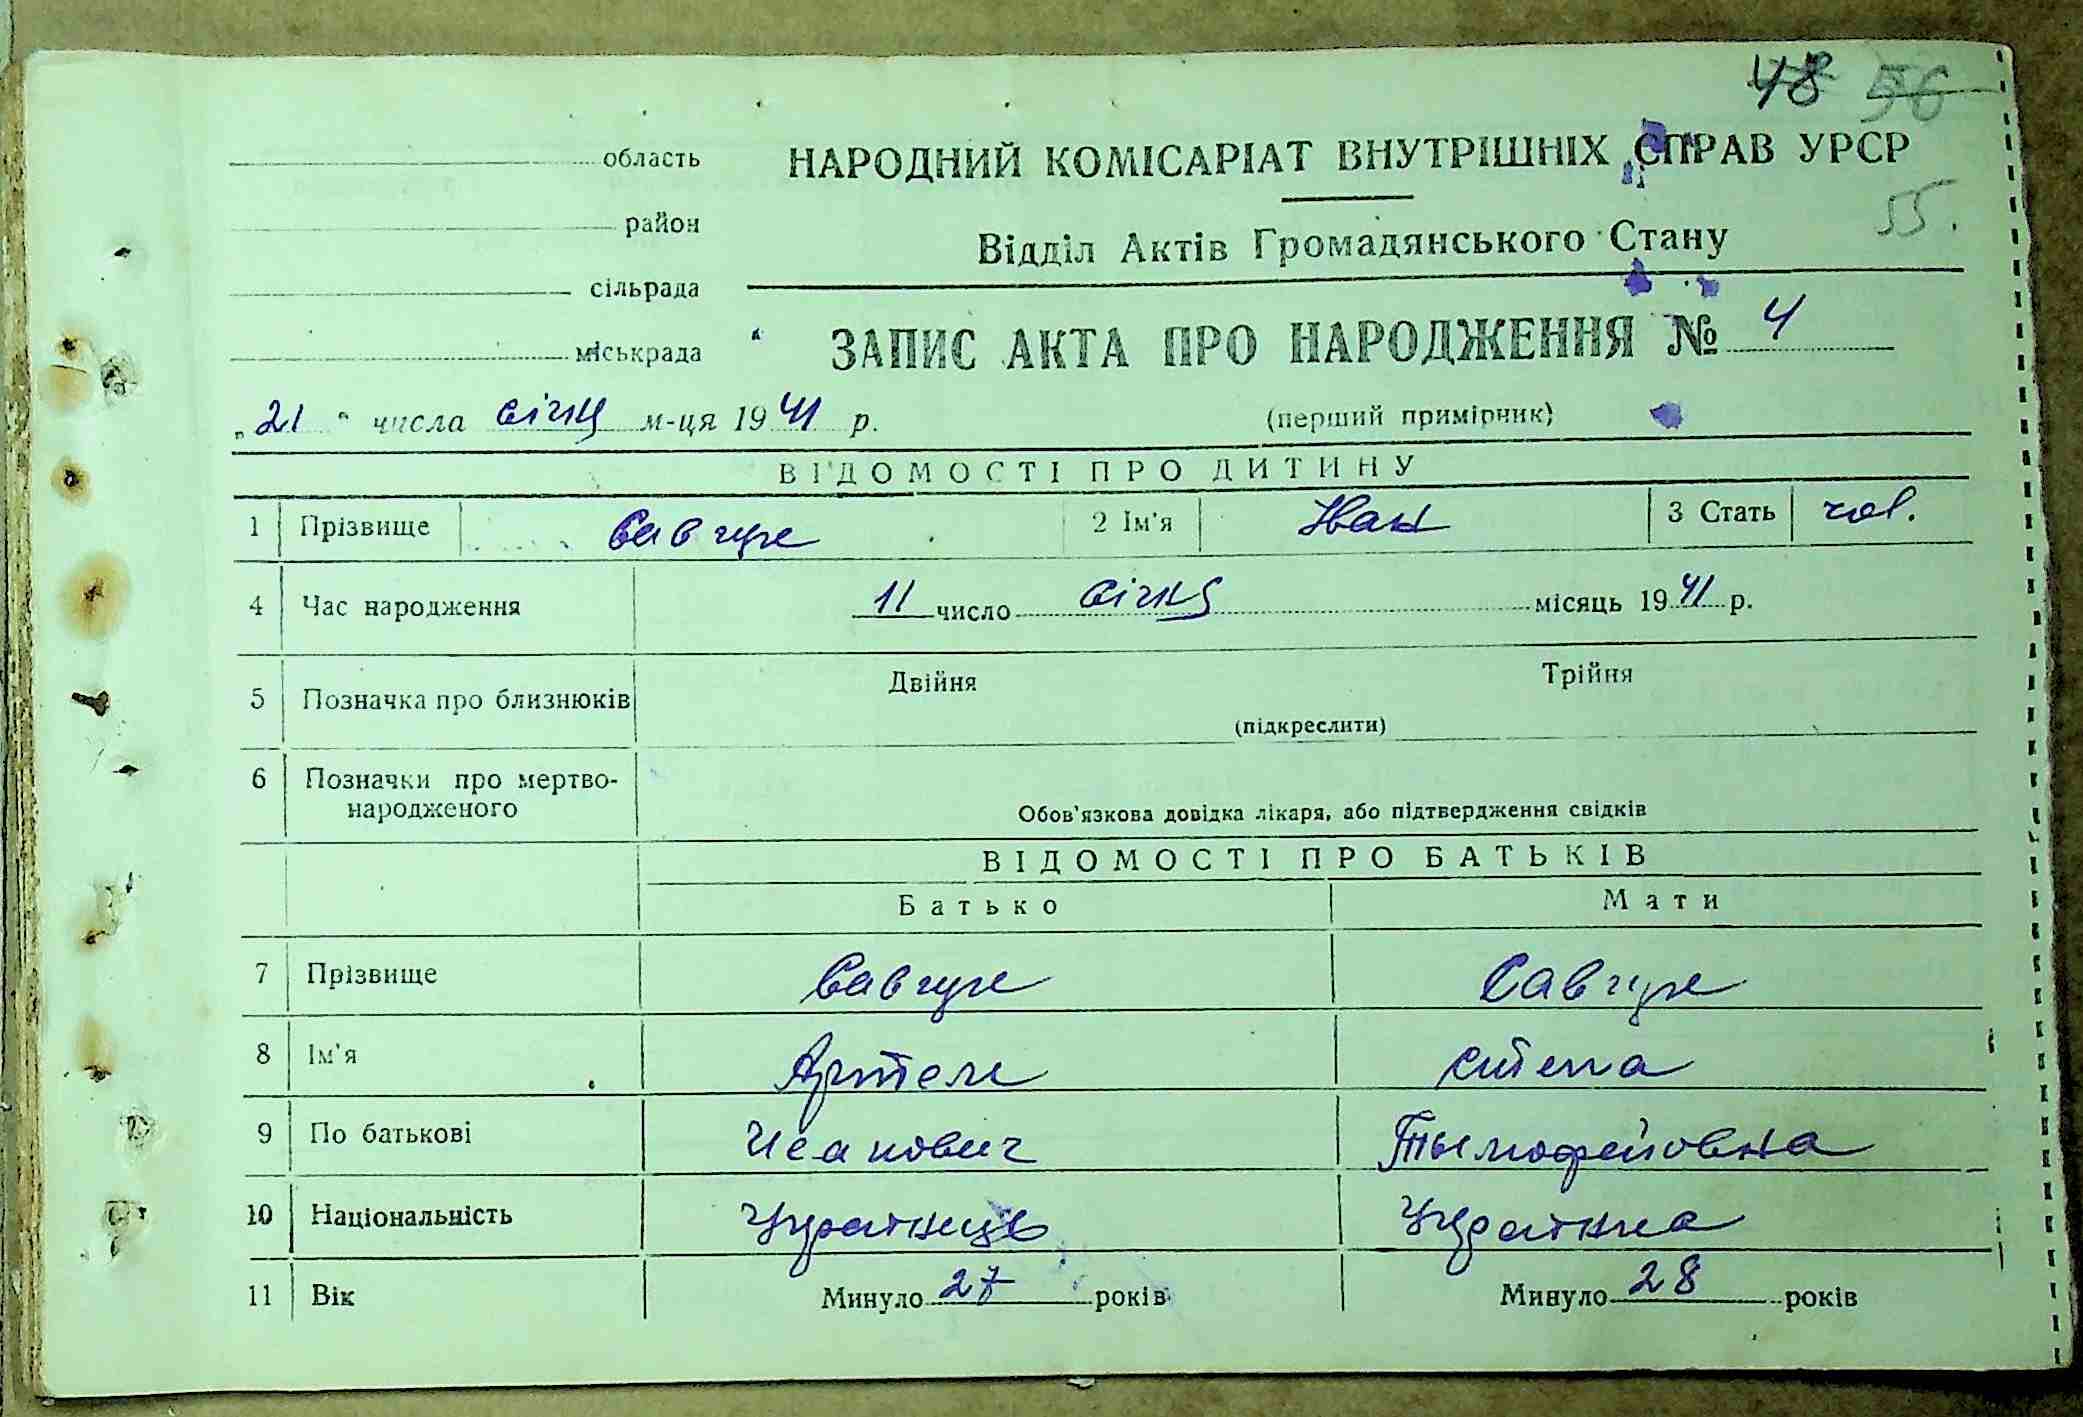 48 56
область
НАРОДНИЙ КОМІСАРІАТ ВНУТРІШНІХ СПРАВ УРСР
район
55.
Відділ Актів Громадянського Стану
сільрада
міськрада
ЗАПИС АКТА ПРО НАРОДЖЕННЯ № 4
„21" числа січня м-ця 1941 р.
(перший примірник)
ВІДОМОСТІ ПРО ДИТИНУ
1 Прізвище 2 Ім'я Иван 3 Стать чол.
4 Час народження 11 число січня місяць 1941 р.
5 Позначка про близнюків Двійня Трійня
(підкреслити)
6 Позначки про мертво-
народженого
Обов'язкова довідка лікаря, або підтвердження свідків
ВІДОМОСТІ ПРО БАТЬКІВ
Батько Мати
7 Прізвище
8 Ім'я Артем
9 По батькові Иванович Тымофейовна
10 Національність Українець Українка
11 Вік Минуло 27 років Минуло 28 років